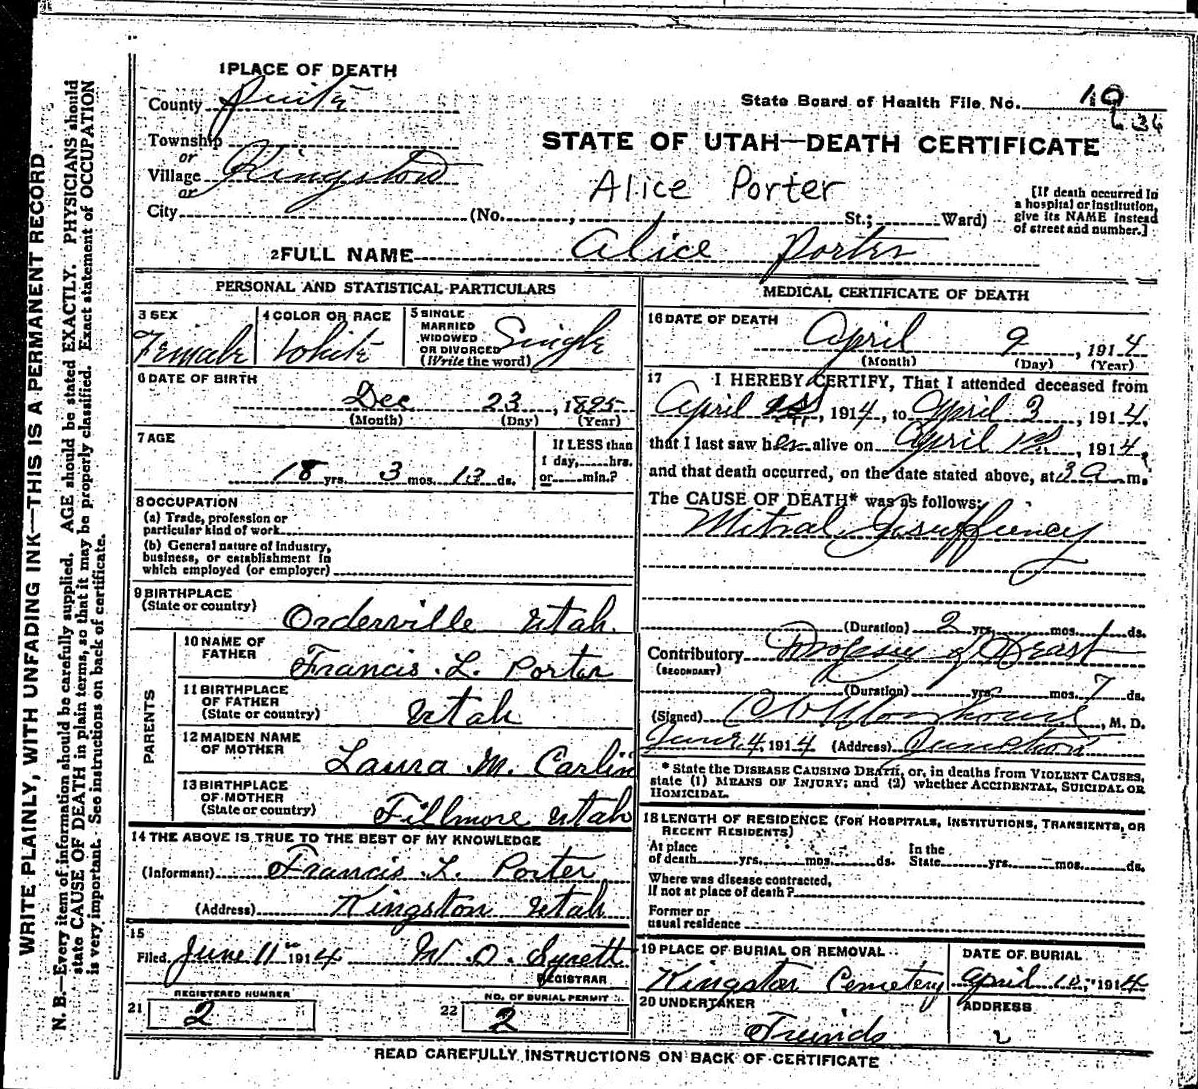 WRITE PLAINLY, WITH UNFADING INK—THIS IS A PERMANENT RECORD
N. B.—Every item of information should be carefully supplied. AGE should be stated EXACTLY. PHYSICIANS should
state CAUSE OF DEATH in plain terms, so that it may be properly classified. Exact statement of OCCUPATION
is very important. See instructions on back of certificate.
1 PLACE OF DEATH
County Piute
State Board of Health File No. 19
636
Township
or
Village Kingston
or
STATE OF UTAH—DEATH CERTIFICATE
Alice Porter
City (No. , St.; Ward)
[If death occurred in
a hospital or institution,
give its NAME instead
of street and number.]
2 FULL NAME Alice Porter
PERSONAL AND STATISTICAL PARTICULARS
3 SEX
Female
4 COLOR OR RACE
White
5 SINGLE
MARRIED
WIDOWED
OR DIVORCED
(Write the word)
Single
6 DATE OF BIRTH
Dec 23, 1895
(Month) (Day) (Year)
7 AGE
18 yrs. 3 mos. 13 ds.
If LESS than
1 day, hrs.
or min.?
8 OCCUPATION
(a) Trade, profession or
particular kind of work
(b) General nature of industry,
business, or establishment in
which employed (or employer)
9 BIRTHPLACE
(State or country)
Orderville Utah.
PARENTS
10 NAME OF
FATHER
Francis. L. Porter
11 BIRTHPLACE
OF FATHER
(State or country)
Utah
12 MAIDEN NAME
OF MOTHER
Laura M. Carlin
13 BIRTHPLACE
OF MOTHER
(State or country)
Fillmore Utah
14 THE ABOVE IS TRUE TO THE BEST OF MY KNOWLEDGE
(Informant) Francis L. Porter
(Address) Kingston Utah
15
Filed June 11 1914 W. O.
REGISTRAR
REGISTERED NUMBER
21 2
NO. OF BURIAL PERMIT
22 2
MEDICAL CERTIFICATE OF DEATH
16 DATE OF DEATH
April 9, 1914
(Month) (Day) (Year)
17 I HEREBY CERTIFY, That I attended deceased from
April 1st, 1914, to April 3, 1914,
that I last saw her alive on April, 1914,
and that death occurred, on the date stated above, at 3 a m.
The CAUSE OF DEATH* was as follows:
Mitral Insuffiency
(Duration) 2 yrs. mos. ds.
Contributory Dropsy of
(SECONDARY)
(Duration) yrs. mos. 7 ds.
(Signed) , M. D.
June 4, 1914 (Address) Junction
* State the DISEASE CAUSING DEATH, or, in deaths from VIOLENT CAUSES,
state (1) MEANS OF INJURY; and (2) whether ACCIDENTAL, SUICIDAL OR
HOMICIDAL.
18 LENGTH OF RESIDENCE (FOR HOSPITALS, INSTITUTIONS, TRANSIENTS, OR
RECENT RESIDENTS)
At place
of death yrs. mos. ds.
In the
State yrs. mos. ds.
Where was disease contracted,
if not at place of death?
Former or
usual residence
19 PLACE OF BURIAL OR REMOVAL
Kingston Cemetery
DATE OF BURIAL
April 10, 1914
20 UNDERTAKER
Friends
ADDRESS
READ CAREFULLY INSTRUCTIONS ON BACK OF CERTIFICATE